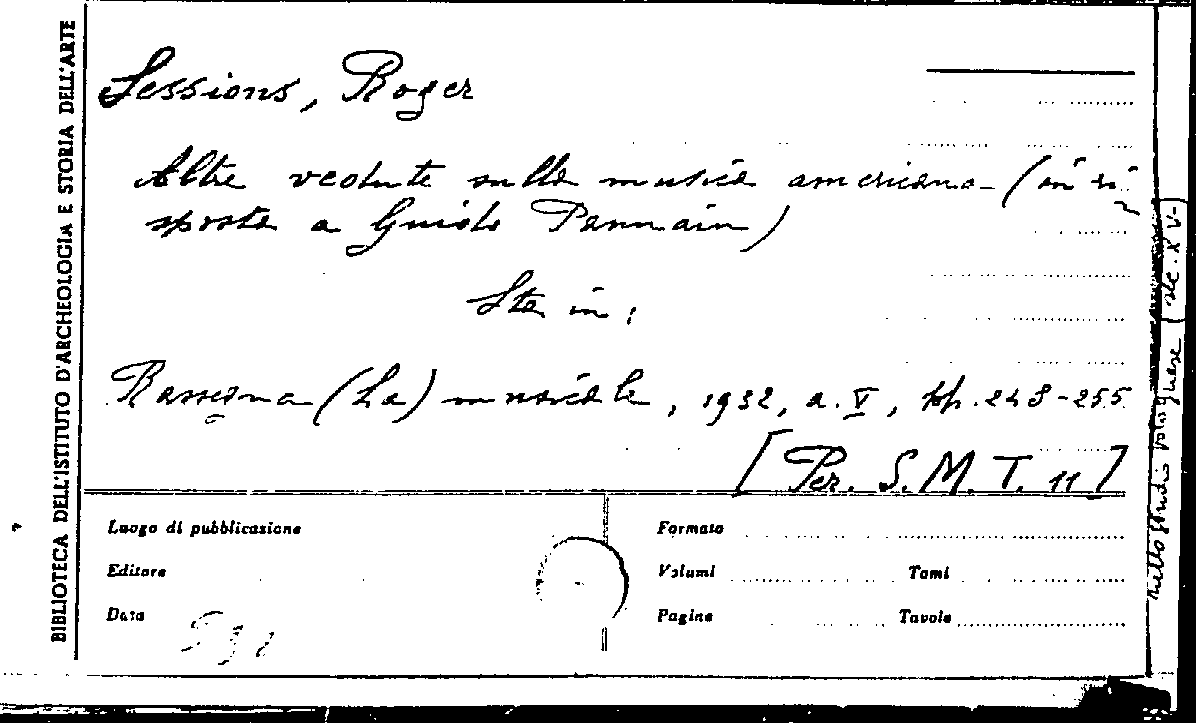 BIBLIOTECA DELL'ISTITUTO D'ARCHEOLOGIA E STORIA DELL'ARTE
Sessions, Roger
Altre vedute sulla musica americana (in ri
sposta a Guido Pannain)
Sta in:
Rassegna (La) musicale, 1932, a. V, pp. 248-255
[Per. S. M. T. 11]
Luogo di pubblicazione
Editore
Data
Formato
Volumi Tomi
Pagine Tavole
sec. XV